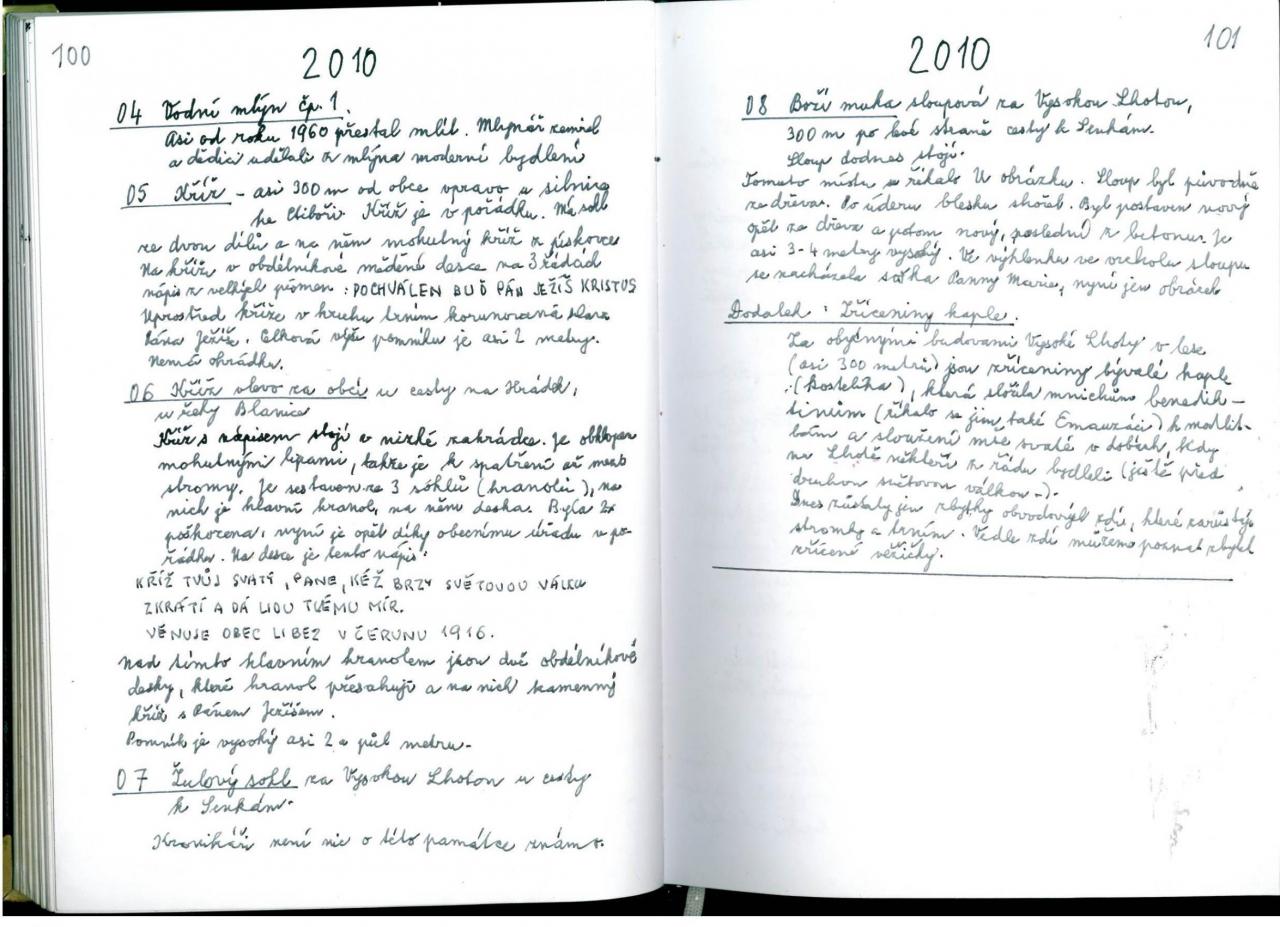 100
2010
04 Vodní mlýn čp. 1.
Asi od roku 1960 přestal mlít. Mlynář zemřel
a dědici udělali z mlýna moderní bydlení
05 Kříž – asi 300 m od obce vpravo u silnice
ke Ctiboři. Kříž je v pořádku. Má sokl
ze dvou dílů a na něm mohutný kříž z pískovce
Na kříži v obdélníkové měděné desce na 3 řádcích
nápis z velkých písmen: POCHVÁLEN BUĎ PÁN JEŽÍŠ KRISTUS
Uprostřed kříže v kruhu trním korunovaná hlava
Pána Ježíše. Celková výše pomníku je asi 2 metry.
Nemá ohrádku.
06 Kříž vlevo za obcí u cesty na Hrádek,
u řeky Blanice
Kříž s nápisem stojí v nízké zahrádce. Je obklopen
mohutnými lípami, takže je k spatření až mezi
stromy. Je sestaven ze 3 soklů (hranolů), na
nich je hlavní hranol, na němu deska. Byla 2x
poškozena, nyní je opět díky obecnímu úřadu v po-
řádku. Na desce je tento nápis:
KŘÍŽ TVŮJ SVATÝ, PANE, KÉŽ BRZY SVĚTOVOU VÁLKU
ZKRÁTÍ A DÁ LIDU TVÉMU MÍR.
VĚNUJE OBEC LIBEŽ V ČERVNU 1916.
Nad tímto hlavním hranolem jsou dvě obdélníkové
desky, které hranol přesahují a na nich kamenný
kříž s Pánem Ježíšem.
Pomník je vysoký asi 2 a půl metru.
07 Žulový sokl za Vysokou Lhotou u cesty
k Senkám.
Kronikáři není nic o této památce známo.
101
2010
08 Boží muka sloupová za Vysokou Lhotou,
300 m po levé straně cesty k Senkám.
Sloup dodnes stojí.
Tomuto místu se říkalo U obrázku. Sloup byl původně
ze dřeva. Po úderu blesku shořel. Byl postaven nový
opět ze dřeva a potom nový, poslední z betonu. Je
asi 3-4 metry vysoký. Ve výklenku ve vrcholu sloupu
se nacházela soška Panny Marie, nyní jen obrázek
Dodatek: Zříceniny kaple.
Za obytnými budovami Vysoké Lhoty v lese
(asi 300 metrů) jsou zříceniny bývalé kaple
(kostelíka), která sloužila mnichům benedik-
tinům (říkalo se jim také Emauzáci) k modlit-
bám a sloužení mše svaté v dobách, kdy
na Lhotě někteří z řádu bydleli (ještě před
druhou světovou válkou).
Dnes zůstaly jen zbytky obvodových zdí, které zarůstají
stromky a trním. Vedle zdí můžeme poznat zbytek
zřícené věžičky.